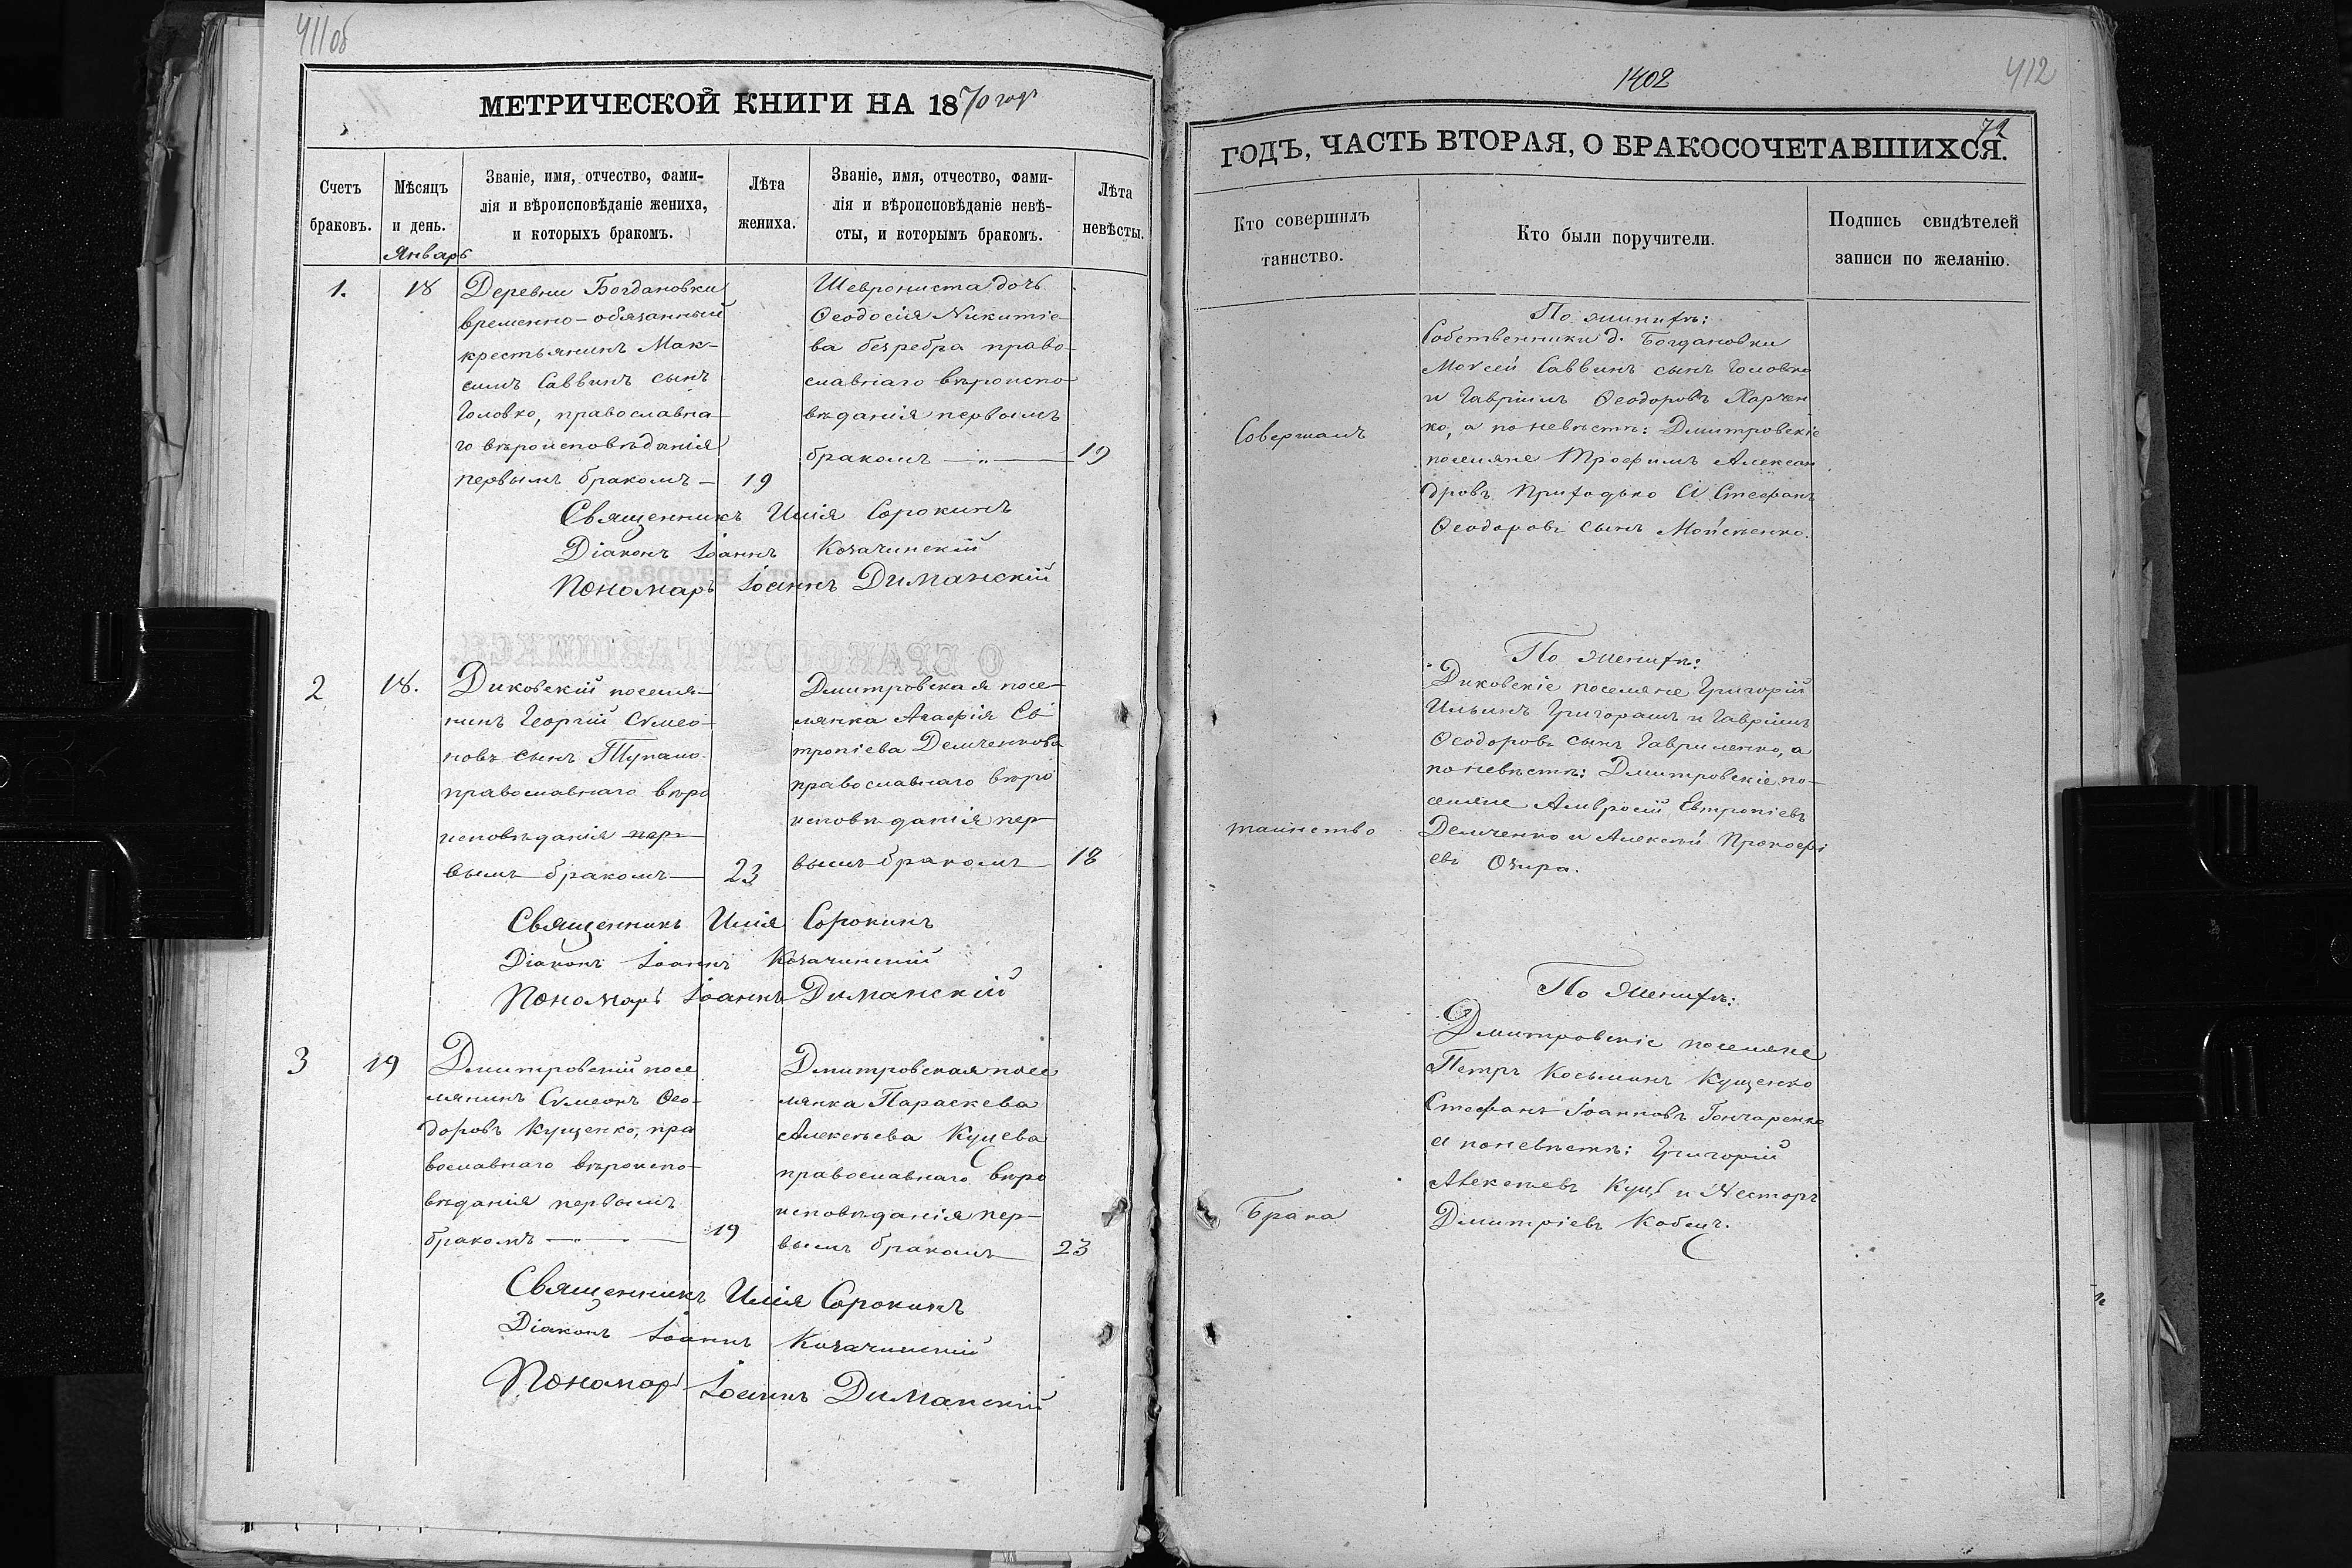 411об
МЕТРИЧЕСКОЙ КНИГИ НА 1870 годъ
Счетъ браковъ.
Мѣсяцъ и день.
Январь
Званіе, имя, отчество, фами-
лія и вѣроисповѣданіе жениха,
и которыхъ бракомъ.
Лѣта жениха.
Званіе, имя, отчество, фами-
лія и вѣроисповѣданіе невѣ-
сты, и которымъ бракомъ.
Лѣта невѣсты.
1.
18
Деревни Богдановки
временно-обязанный
крестьянинъ Мак-
симъ Саввинъ сынъ
Головко, православна-
го вѣроисповѣданія
первымъ бракомъ —
19
дочь
Ѳеодосія Никитіе-
ва право-
славнаго вѣроиспо-
вѣданія первымъ
бракомъ — „ —
19
Священникъ Илія Сорокинъ
Діаконъ Іоаннъ Козачинскій
Пономарь Іоаннъ Диманскій
2
18.
Диковскій поселя-
нинъ Георгій Сѵмео-
новъ сынъ
православнаго вѣро
исповѣданія пер-
вымъ бракомъ —
23
Дмитровская посе-
лянка Агафія Ев
тропіева Демченкова
православнаго вѣро
исповѣданія пер-
вымъ бракомъ —
18
Священникъ Илія Сорокинъ
Діаконъ Іоаннъ Козачинскій
Пономарь Іоаннъ Диманскій
3
19
Дмитровскій посе
лянинъ Сѵмеонъ Ѳео-
доровъ Кущенко, пра
вославнаго вѣроиспо-
вѣданія первымъ
бракомъ —
19
Дмитровская посе
лянка Параскева
Алексѣева Куцева
православнаго вѣро
исповѣданія пер-
вымъ бракомъ —
23
Священникъ Илія Сорокинъ
Діаконъ Іоаннъ Козачинскій
Пономарь Іоаннъ Диманскій
1402
412
72
ГОДЪ, ЧАСТЬ ВТОРАЯ, О БРАКОСОЧЕТАВШИХСЯ.
Кто совершилъ таинство.
Кто были поручители.
Подпись свидѣтелей
записи по желанію.
Совершалъ
таинство
Брака
По женихѣ:
Собственники д. Богдановки
Моѵсей Саввинъ сынъ Головко
и Гавріилъ Ѳеодоровъ Харчен
ко, а по невѣстѣ: Дмитровскіе
поселяне Трофимъ Алексан
дровъ Приходько и Стефанъ
Ѳеодоровъ сынъ Мойсѣенко.
По женихѣ:
Диковскіе поселяне Григорій
Ильинъ Григорашъ и Гавріилъ
Ѳеодоровъ сынъ Гавриленко, а
по невѣстѣ: Дмитровскіе по-
селяне Амвросій Евтропіевъ
Демченко и Алексѣй Прокофі
евъ
По женихѣ:
Дмитровскіе поселяне
Петръ Косьминъ Кущенко
Стефанъ Іоанновъ Гончаренко
а по невѣстѣ: Григорій
Алексѣевъ Куцъ и Несторъ
Дмитріевъ